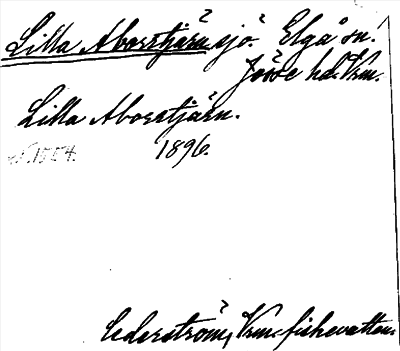 Lilla Aborrtjärn sjö. Elgå sn.
Jösse hd. Vrm.
Lilla Aborrtjärn.
1896.
Cederström, Vrm. fiskevatten